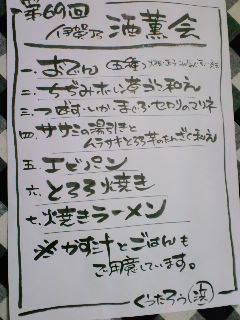 第69回
伊賀乃 酒薫会
一、おでん
二、ちぢみホーレン草ゴマ和え
三、つぶ貝・いか・まぐろ・セロリのマリネ
四、ササミの湯引きと
ムラサキとろろ芋のたんざく和え
五、エビパン
六、とろろ焼き
七、焼きラーメン
※かす汁とごはんも
ご用意しています。
くぅたろぅ